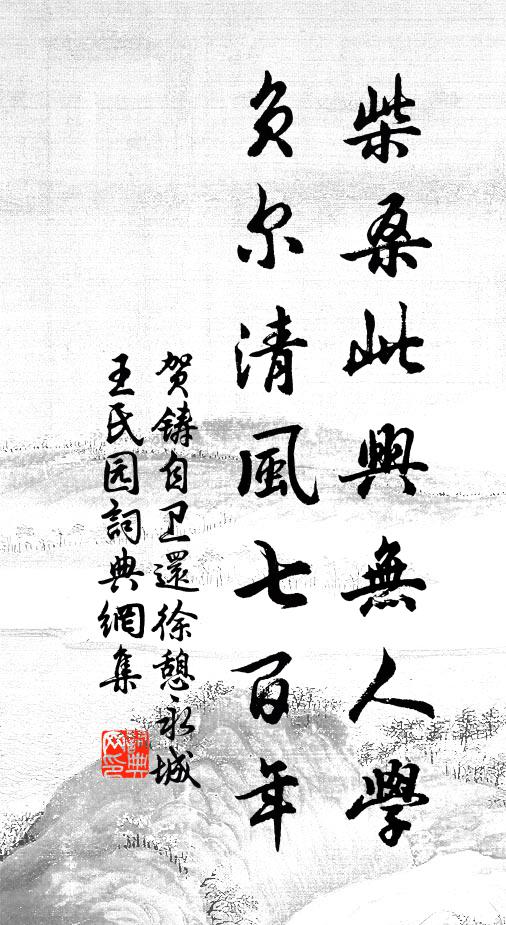 柴桑此興無人學
負尔清風七百年
贺鑄自卫還徐憩永城
王氏园詞典網集